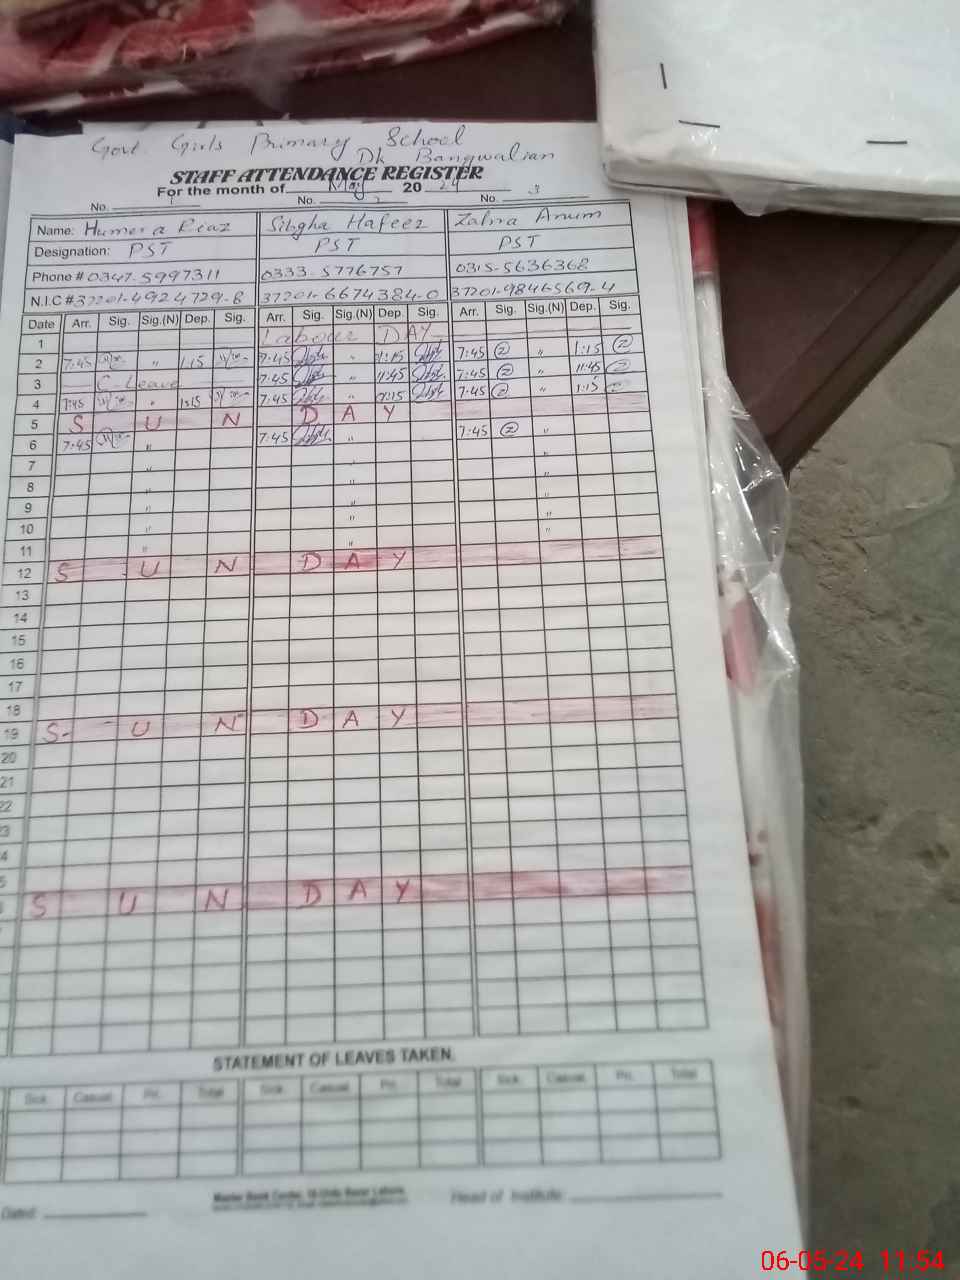 Govt Girls Primary School
Dk Bangwalian
STAFF ATTENDANCE REGISTER
For the month of May 20 24
No. 1 No. 2 No. 3
Name: Humera Riaz Sibgha Hafeez Zahra Anum
Designation: PST PST PST
Phone # 0347-5997311 0333-5776757 0315-5636368
N.I.C # 37201-4924729-8 37201-6674384-0 37201-9846569-4
Date Arr. Sig. Sig.(N) Dep. Sig. Arr. Sig. Sig.(N) Dep. Sig. Arr. Sig. Sig.(N) Dep. Sig.
1 Labour DAY
2 7:45 " 1:15 7:45 " 1:15 7:45 " 1:15
3 C-Leave 7:45 " 11:45 7:45 " 11:45
4 7:45 " 1:15 7:45 " 1:15 7:45 " 1:15
5 S U N D A Y
6 7:45 " 7:45 " 7:45 "
7 " " "
8 " " "
9 " " "
10 " " "
11 " "
12 S U N D A Y
13
14
15
16
17
18
19 S U N D A Y
20
21
22
3
4
5
S U N D A Y
STATEMENT OF LEAVES TAKEN.
Sick Casual Pri. Total Sick Casual Pri. Total Sick Casual Pri. Total
Dated: Head of Institute:
06-05-24 11:54